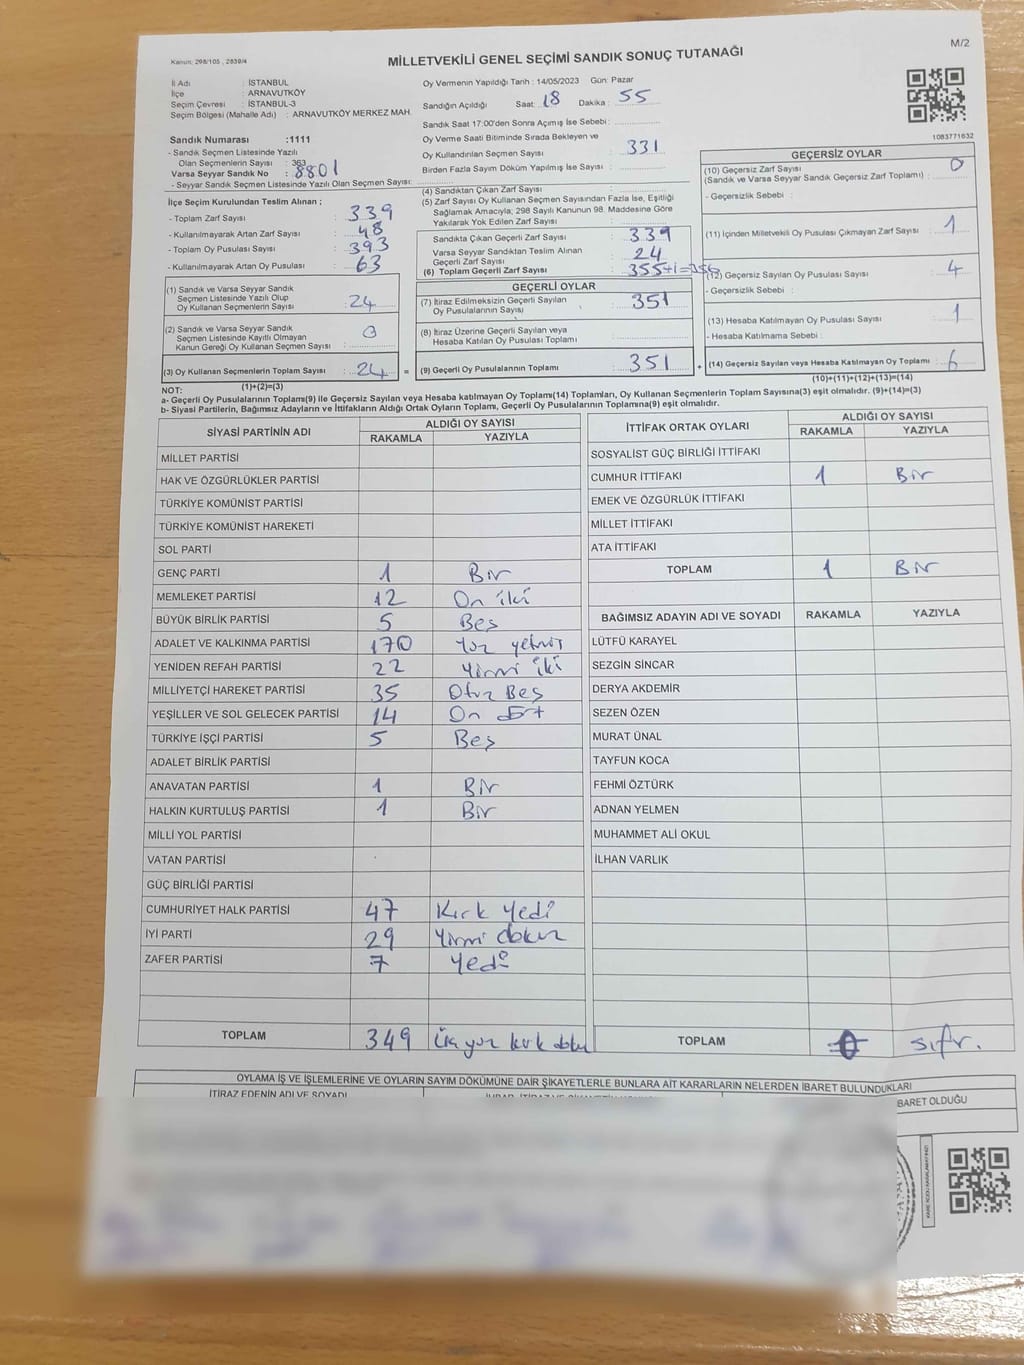 M/2
Kanun: 298/105 , 2839/4
MİLLETVEKİLİ GENEL SEÇİMİ SANDIK SONUÇ TUTANAĞI
İl Adı : İSTANBUL
İlçe : ARNAVUTKÖY
Seçim Çevresi : İSTANBUL-3
Seçim Bölgesi (Mahalle Adı) : ARNAVUTKÖY MERKEZ MAH.
Sandık Numarası :1111
- Sandık Seçmen Listesinde Yazılı
Olan Seçmenlerin Sayısı : 363
Varsa Seyyar Sandık No : 8801
- Seyyar Sandık Seçmen Listesinde Yazılı Olan Seçmen Sayısı:
Oy Vermenin Yapıldığı Tarih : 14/05/2023 Gün: Pazar
Sandığın Açıldığı Saat: 18 Dakika : 55
Sandık Saat 17:00'den Sonra Açımış İse Sebebi :
Oy Verme Saati Bitiminde Sırada Bekleyen ve
Oy Kullandırılan Seçmen Sayısı : 331
Birden Fazla Sayım Döküm Yapılmış İse Sayısı :
1083771632
İlçe Seçim Kurulundan Teslim Alınan ;
- Toplam Zarf Sayısı : 339
-Kullanılmayarak Artan Zarf Sayısı : 48
- Toplam Oy Pusulası Sayısı : 393
- Kullanılmayarak Artan Oy Pusulası : 63
(1) Sandık ve Varsa Seyyar Sandık
Seçmen Listesinde Yazılı Olup
Oy Kullanan Seçmenlerin Sayısı : 24
(2) Sandık ve Varsa Seyyar Sandık
Seçmen Listesinde Kayıtlı Olmayan
Kanun Gereği Oy Kullanan Seçmen Sayısı : 0
(3) Oy Kullanan Seçmenlerin Toplam Sayısı : 24 =
(1)+(2)=(3)
(4) Sandıktan Çıkan Zarf Sayısı :
(5) Zarf Sayısı Oy Kullanan Seçmen Sayısından Fazla İse, Eşitliği
Sağlamak Amacıyla; 298 Sayılı Kanunun 98. Maddesine Göre
Yakılarak Yok Edilen Zarf Sayısı :
Sandıkta Çıkan Geçerli Zarf Sayısı : 339
Varsa Seyyar Sandıktan Teslim Alınan
Geçerli Zarf Sayısı : 24
(6) Toplam Geçerli Zarf Sayısı : 355+1=356
GEÇERLİ OYLAR
(7) İtiraz Edilmeksizin Geçerli Sayılan
Oy Pusulalarının Sayısı : 351
(8) İtiraz Üzerine Geçerli Sayılan veya
Hesaba Katılan Oy Pusulası Toplamı :
(9) Geçerli Oy Pusulalarının Toplamı : 351 +
GEÇERSİZ OYLAR
(10) Geçersiz Zarf Sayısı
(Sandık ve Varsa Seyyar Sandık Geçersiz Zarf Toplamı) : 0
- Geçersizlik Sebebi :
(11) İçinden Milletvekili Oy Pusulası Çıkmayan Zarf Sayısı : 1
(12) Geçersiz Sayılan Oy Pusulası Sayısı : 4
- Geçersizlik Sebebi :
(13) Hesaba Katılmayan Oy Pusulası Sayısı : 1
- Hesaba Katılmama Sebebi :
(14) Geçersiz Sayılan veya Hesaba Katılmayan Oy Toplamı : 6
(10)+(11)+(12)+(13)=(14)
NOT:
a- Geçerli Oy Pusulalarının Toplamı(9) ile Geçersiz Sayılan veya Hesaba katılmayan Oy Toplam(14) Toplamları, Oy Kullanan Seçmenlerin Toplam Sayısına(3) eşit olmalıdır. (9)+(14)=(3)
b- Siyasi Partilerin, Bağımsız Adayların ve İttifakların Aldığı Ortak Oyların Toplamı, Geçerli Oy Pusulalarının Toplamına(9) eşit olmalıdır.
SİYASİ PARTİNİN ADI ALDIĞI OY SAYISI
RAKAMLA YAZIYLA
MİLLET PARTİSİ
HAK VE ÖZGÜRLÜKLER PARTİSİ
TÜRKİYE KOMÜNİST PARTİSİ
TÜRKİYE KOMÜNİST HAREKETİ
SOL PARTİ
GENÇ PARTİ 1 Bir
MEMLEKET PARTİSİ 12 On iki
BÜYÜK BİRLİK PARTİSİ 5 Beş
ADALET VE KALKINMA PARTİSİ 170 Yüz yetmiş
YENİDEN REFAH PARTİSİ 22 Yirmi iki
MİLLİYETÇİ HAREKET PARTİSİ 35 Otuz Beş
YEŞİLLER VE SOL GELECEK PARTİSİ 14 On dört
TÜRKİYE İŞÇİ PARTİSİ 5 Beş
ADALET BİRLİK PARTİSİ
ANAVATAN PARTİSİ 1 Bir
HALKIN KURTULUŞ PARTİSİ 1 Bir
MİLLİ YOL PARTİSİ
VATAN PARTİSİ
GÜÇ BİRLİĞİ PARTİSİ
CUMHURİYET HALK PARTİSİ 47 Kırk Yedi
İYİ PARTİ 29 Yirmi dokuz
ZAFER PARTİSİ 7 Yedi
TOPLAM 349 Üç yüz kırk doku
İTTİFAK ORTAK OYLARI ALDIĞI OY SAYISI
RAKAMLA YAZIYLA
SOSYALİST GÜÇ BİRLİĞİ İTTİFAKI
CUMHUR İTTİFAKI 1 Bir
EMEK VE ÖZGÜRLÜK İTTİFAKI
MİLLET İTTİFAKI
ATA İTTİFAKI
TOPLAM 1 Bir
BAĞIMSIZ ADAYIN ADI VE SOYADI RAKAMLA YAZIYLA
LÜTFÜ KARAYEL
SEZGİN SİNCAR
DERYA AKDEMİR
SEZEN ÖZEN
MURAT ÜNAL
TAYFUN KOCA
FEHMİ ÖZTÜRK
ADNAN YELMEN
MUHAMMET ALİ OKUL
İLHAN VARLIK
TOPLAM 0 sıfır.
OYLAMA İŞ VE İŞLEMLERİNE VE OYLARIN SAYIM DÖKÜMÜNE DAİR ŞİKAYETLERLE BUNLARA AİT KARARLARIN NELERDEN İBARET BULUNDUKLARI
İTİRAZ EDENİN ADI VE SOYADI
İBARET OLDUĞU